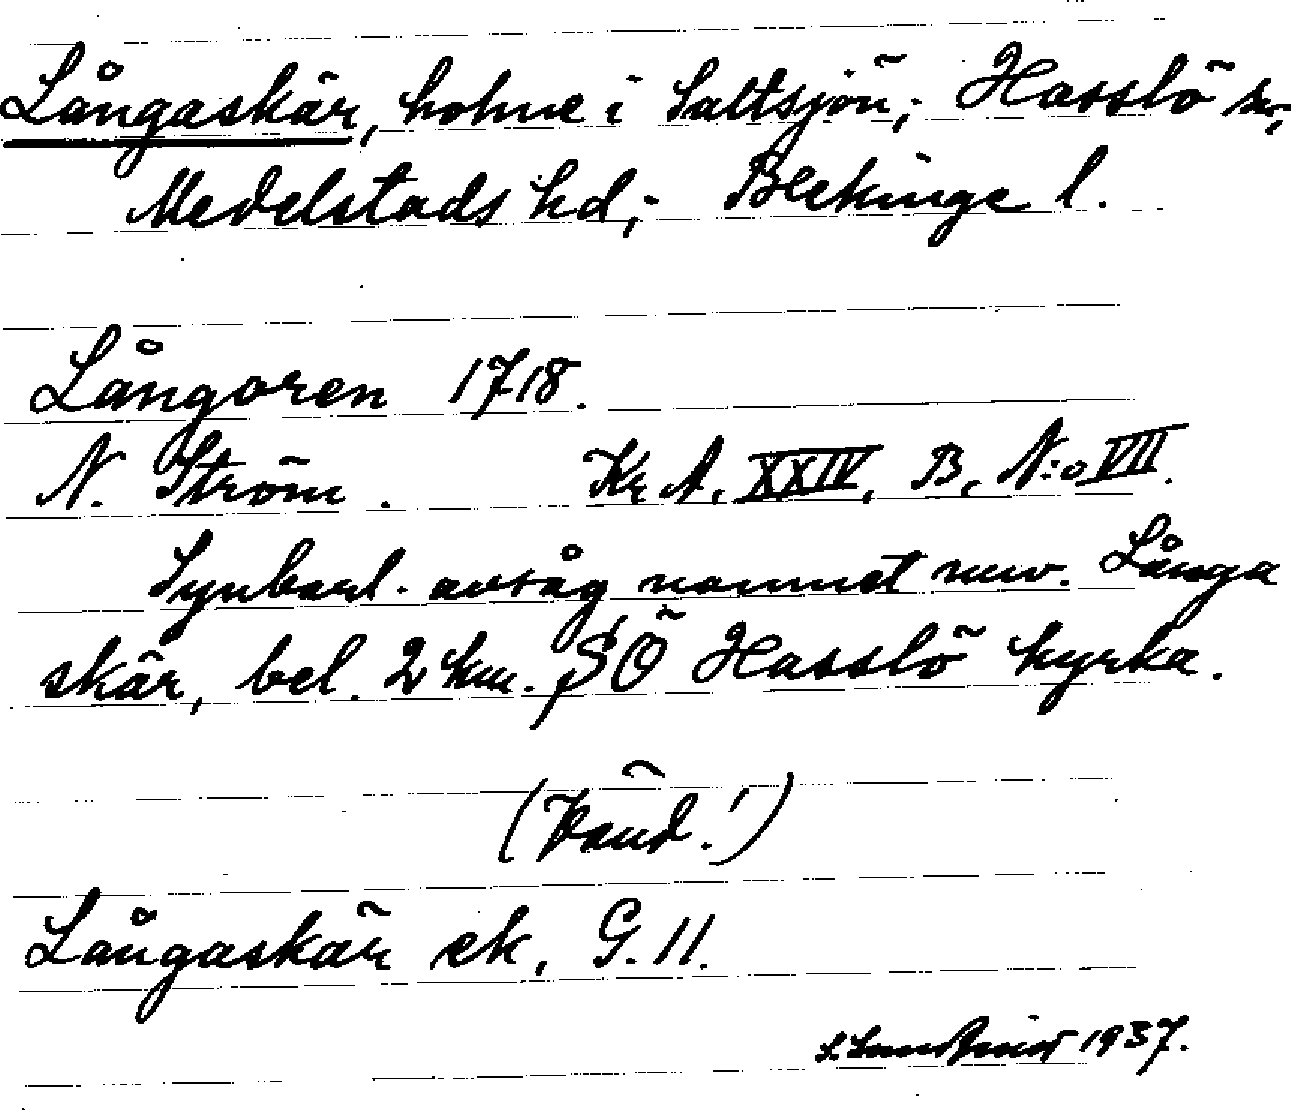 Långaskär, holme i Saltsjön; Hasslö sn,
Medelstads hd; Blekinge l.
Långören 1718.
N. Ström. Kr A, XXIV, B, N:o VII.
Synbarl. avsåg namnet nuv. Långa
skär, bel. 2 km. SÖ Hasslö kyrka.
(Vänd!)
Långaskär ek, G. 11.
1937.